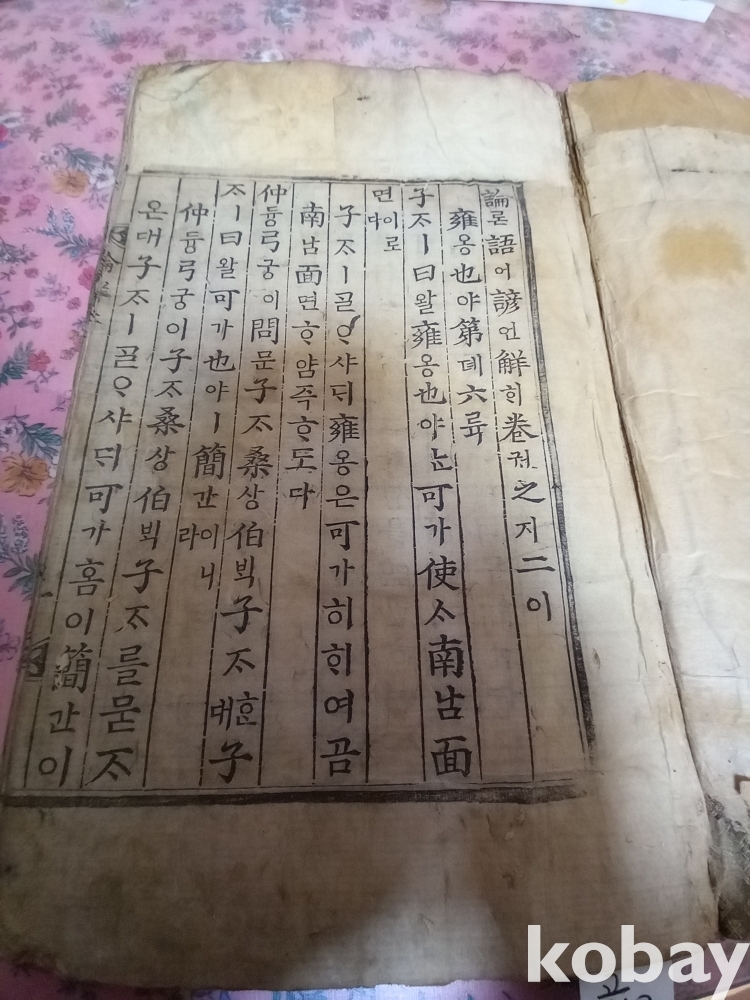 論론語어諺언解ᄒᆡ卷권之지二이
雍옹也야第뎨六륙
子ᄌᆞㅣ曰왈雍옹也야ᄂᆞᆫ可가使ᄉᆞ南남面
면이로다
子ᄌᆞㅣᄀᆞᆯᄋᆞ샤ᄃᆡ雍옹은可가히ᄒᆡ여곰
南남面면ᄒᆞ얌즉ᄒᆞ도다
仲듕弓궁이問문子ᄌᆞ桑상伯ᄇᆡᆨ子ᄌᆞᄒᆞᆫ대子
ᄌᆞㅣ曰왈可가也야ㅣ簡간이니라
仲듕弓궁이子ᄌᆞ桑상伯ᄇᆡᆨ子ᄌᆞ를묻ᄌᆞ
온대子ᄌᆞㅣᄀᆞᆯᄋᆞ샤ᄃᆡ可가홈이簡간이
kobay